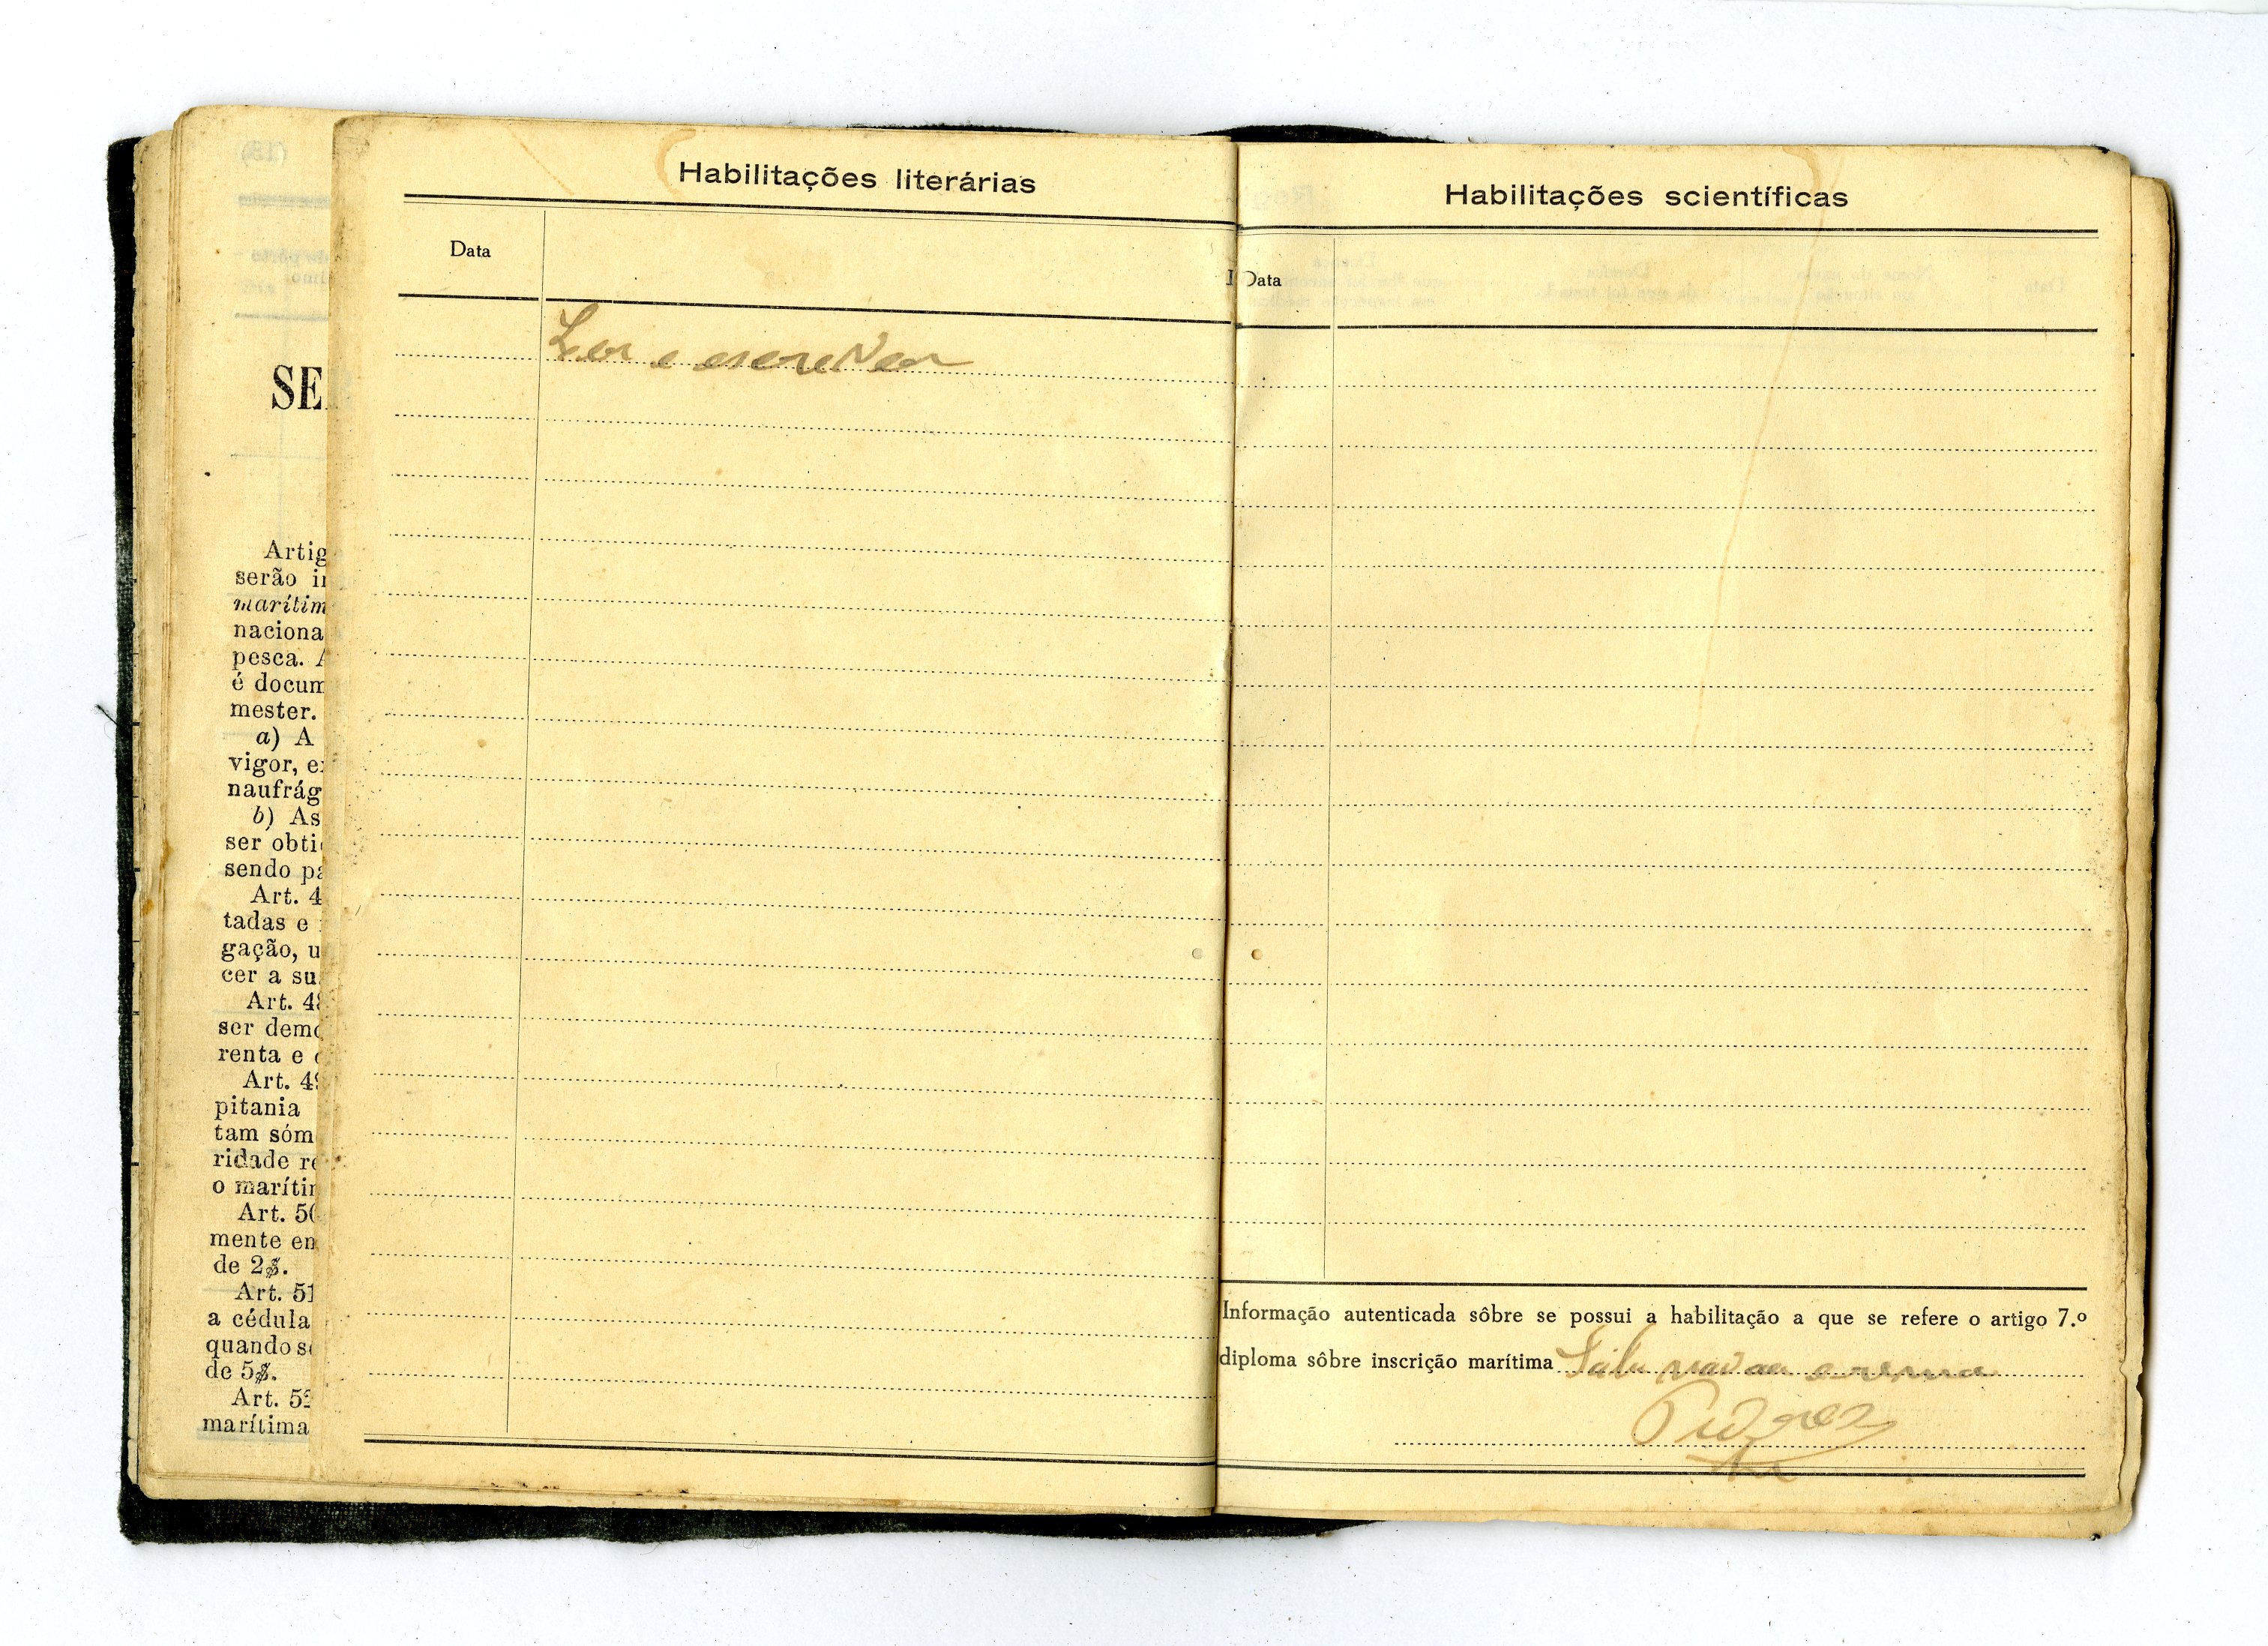 Habilitações literárias
Data
Ler e escrever
SE
Artig
serão i
marítim
naciona
pesca. A
é docum
mester.
a) A
vigor, e
naufrág
b) As
ser obti
sendo pa
Art. 4
tadas e
gação, u
cer a su
Art. 48
ser demo
renta e
Art. 49
pitania
tam sóm
ridade re
o marítim
Art. 50
mente em
de 2$.
Art. 51
a cédula
quando s
de 5$.
Art. 52
marítima
Habilitações scientíficas
Data
Informação autenticada sôbre se possui a habilitação a que se refere o artigo 7.º
diploma sôbre inscrição marítima Sabe nadar e remar